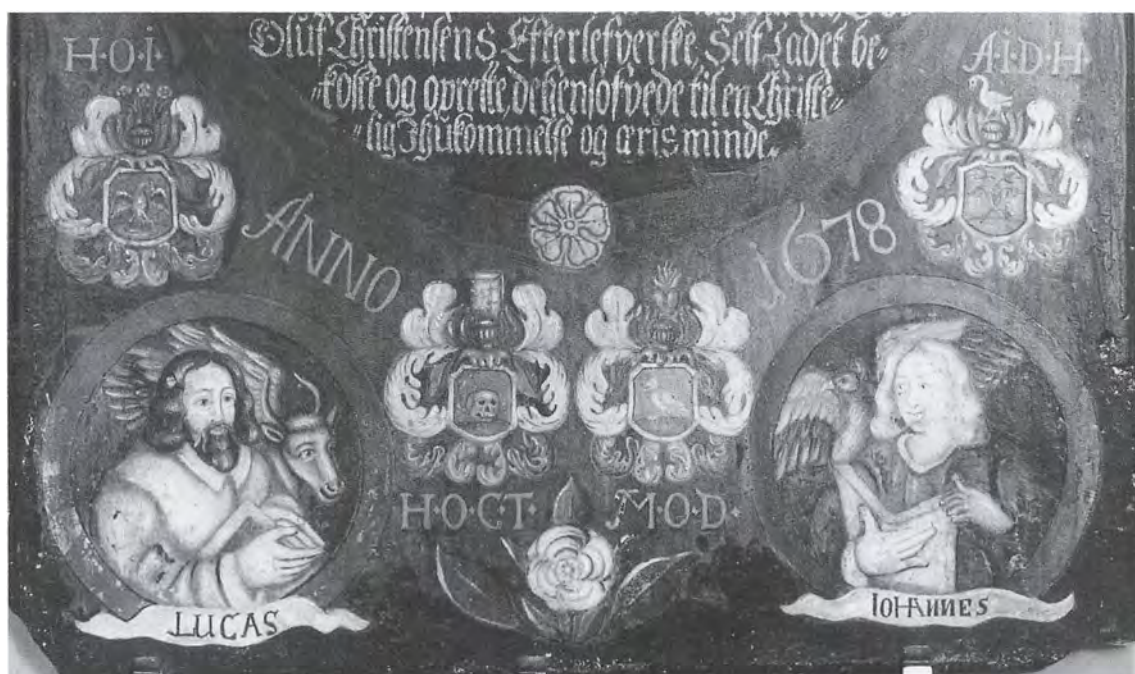 H·O·I·
A·I·D·H·
Oluf Christensens Efterlefverske, Self Ladet be-
koste og oprette, dehensofvede til en Christe-
lig Ihukommelse og æris minde.
ANNO 1678
H·O·C·T· M·O·D·
LUCAS
IOHANNES